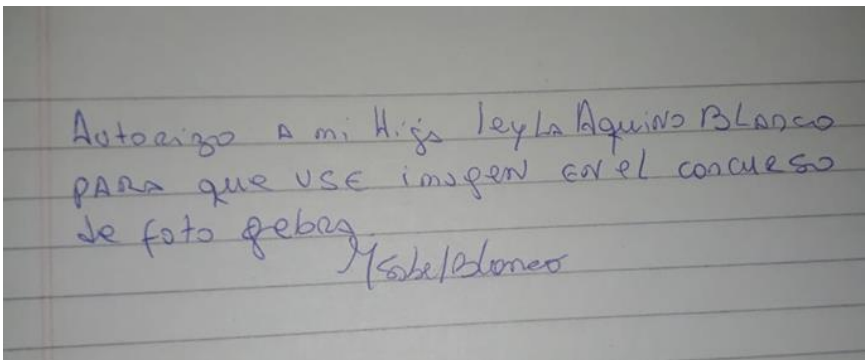 Autorizo A mi Hija leyLa AquiNo BLANco
PARA que USE imagen EN el concurso
de foto gebra
Ysabel Blanco